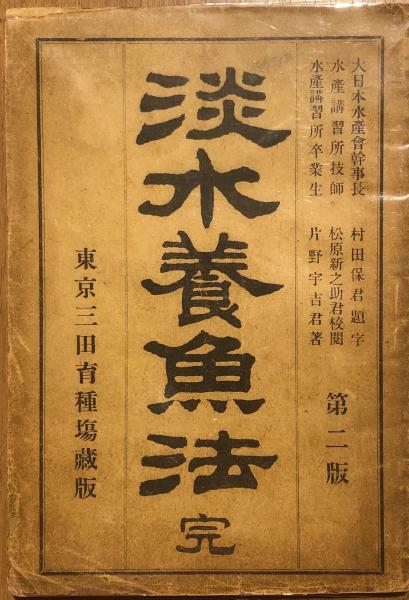 大日本水產會幹事長　村田保君題字
水產講習所技師　松原新之助君校閱
水產講習所卒業生　片野宇吉君著
第二版
淡水養魚法 完
東京三田育種場藏版